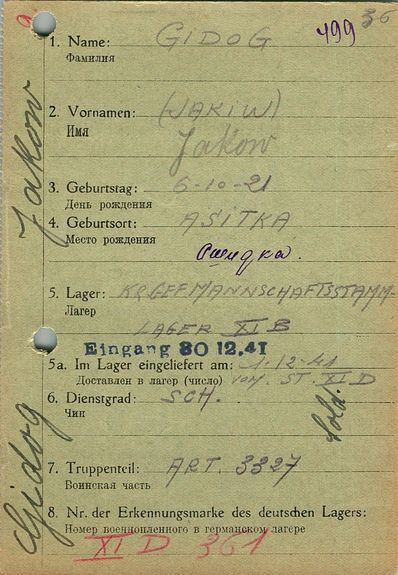 499
36
1. Name: GIDOG
Фамилия
2. Vornamen: (JAKIW)
Имя
Jakow
3. Geburtstag: 6-10-21
День рождения
4. Geburtsort: ASITKA
Место рождения
Ошидка.
5. Lager: KR.GEF MANNSCHAFTSSTAMM-
Лагер
LAGER XI B
Eingang 30 12.41
5a. Im Lager eingeliefert am: 1-12-41
Доставлен в лагер (число) VOM. ST. XI D
6. Dienstgrad: SCH.
Чин
Sold.
7. Truppenteil: ART. 3327
Воинская часть
8. Nr. der Erkennungsmarke des deutschen Lagers:
Номер военнопленного в германском лагере
XI D 361
Gidog Jakow